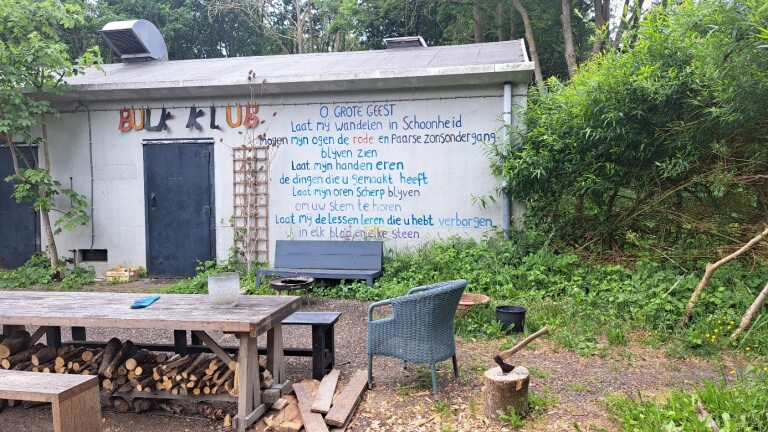 BULK KLUB
O GROTE GEEST
Laat my wandelen in Schoonheid
Mogen myn ogen de rode en Paarse zonsondergang
blyven zien
Laat myn handen eren
de dingen die u gemaakt heeft
Laat myn oren Scherp blyven
om uw stem te horen
Laat my de lessen leren die u hebt verborgen
in elk blad en elke steen